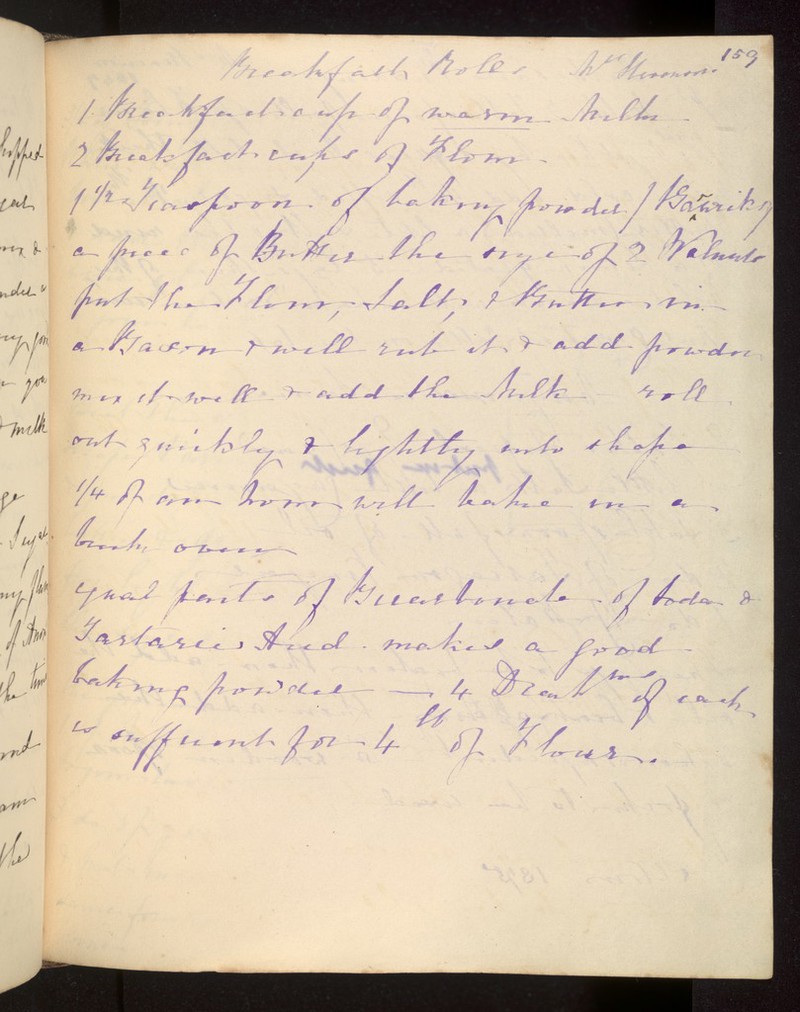 159
Breakfast Rolls Mrs
1 Breakfast cup of warm Milk
2 Breakfast cups of Flour.
1 1/2 Teaspoon of baking powder / Garwicks
a piece of Butter the size of 2 Walnuts
put the Flour, Salt, & Butter in
a Bason & well rub it & add powder
mix it well & add the Milk roll
out quickly & lightly into shape
1/4 of an hour will bake in a
oven
equal parts of Bicarbonate of Soda &
Tartaric Acid makes a good
baking powder — 4 of each
is sufficient for 4 lb of Flour.